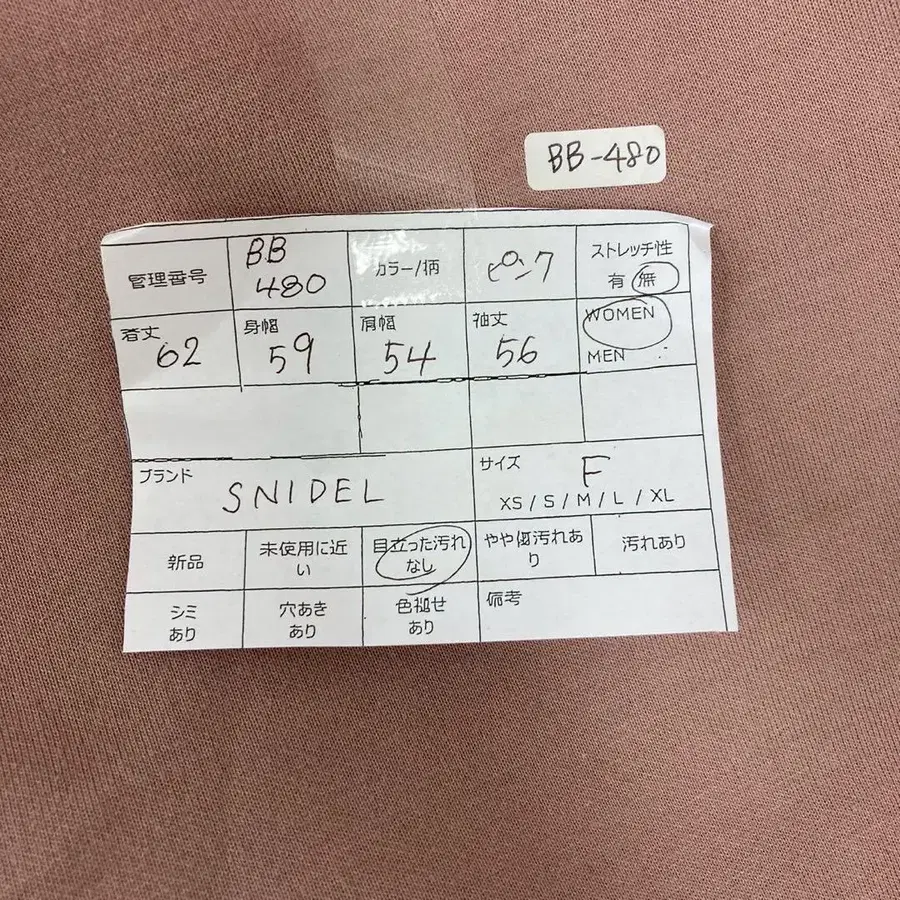 BB-480
管理番号
BB
480
カラー/柄
ピンク
ストレッチ性
有 無
着丈
62
身幅
59
肩幅
54
袖丈
56
WOMEN
MEN
ブランド
SNIDEL
サイズ
F
XS / S / M / L / XL
新品
未使用に近
い
目立った汚れ
なし
やや傷汚れあ
り
汚れあり
シミ
あり
穴あき
あり
色褪せ
あり
備考